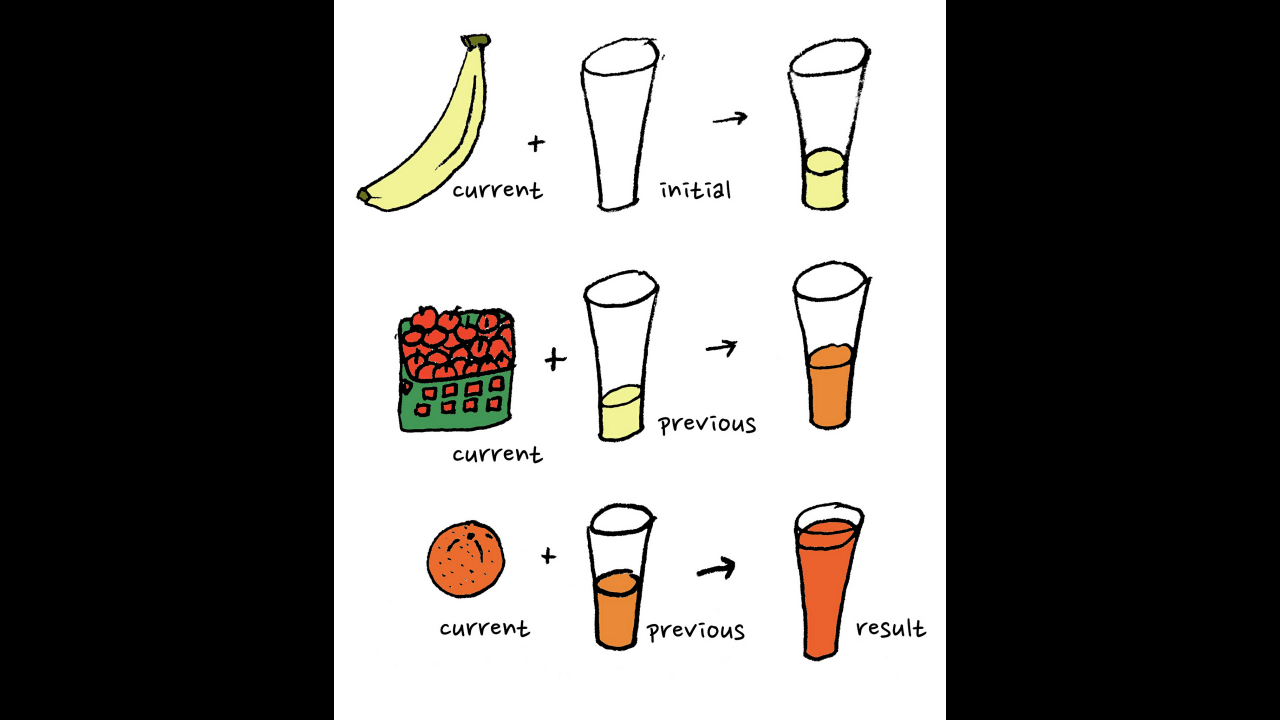 +
current
initial
→
+
current
previous
→
+
current
previous
→
result